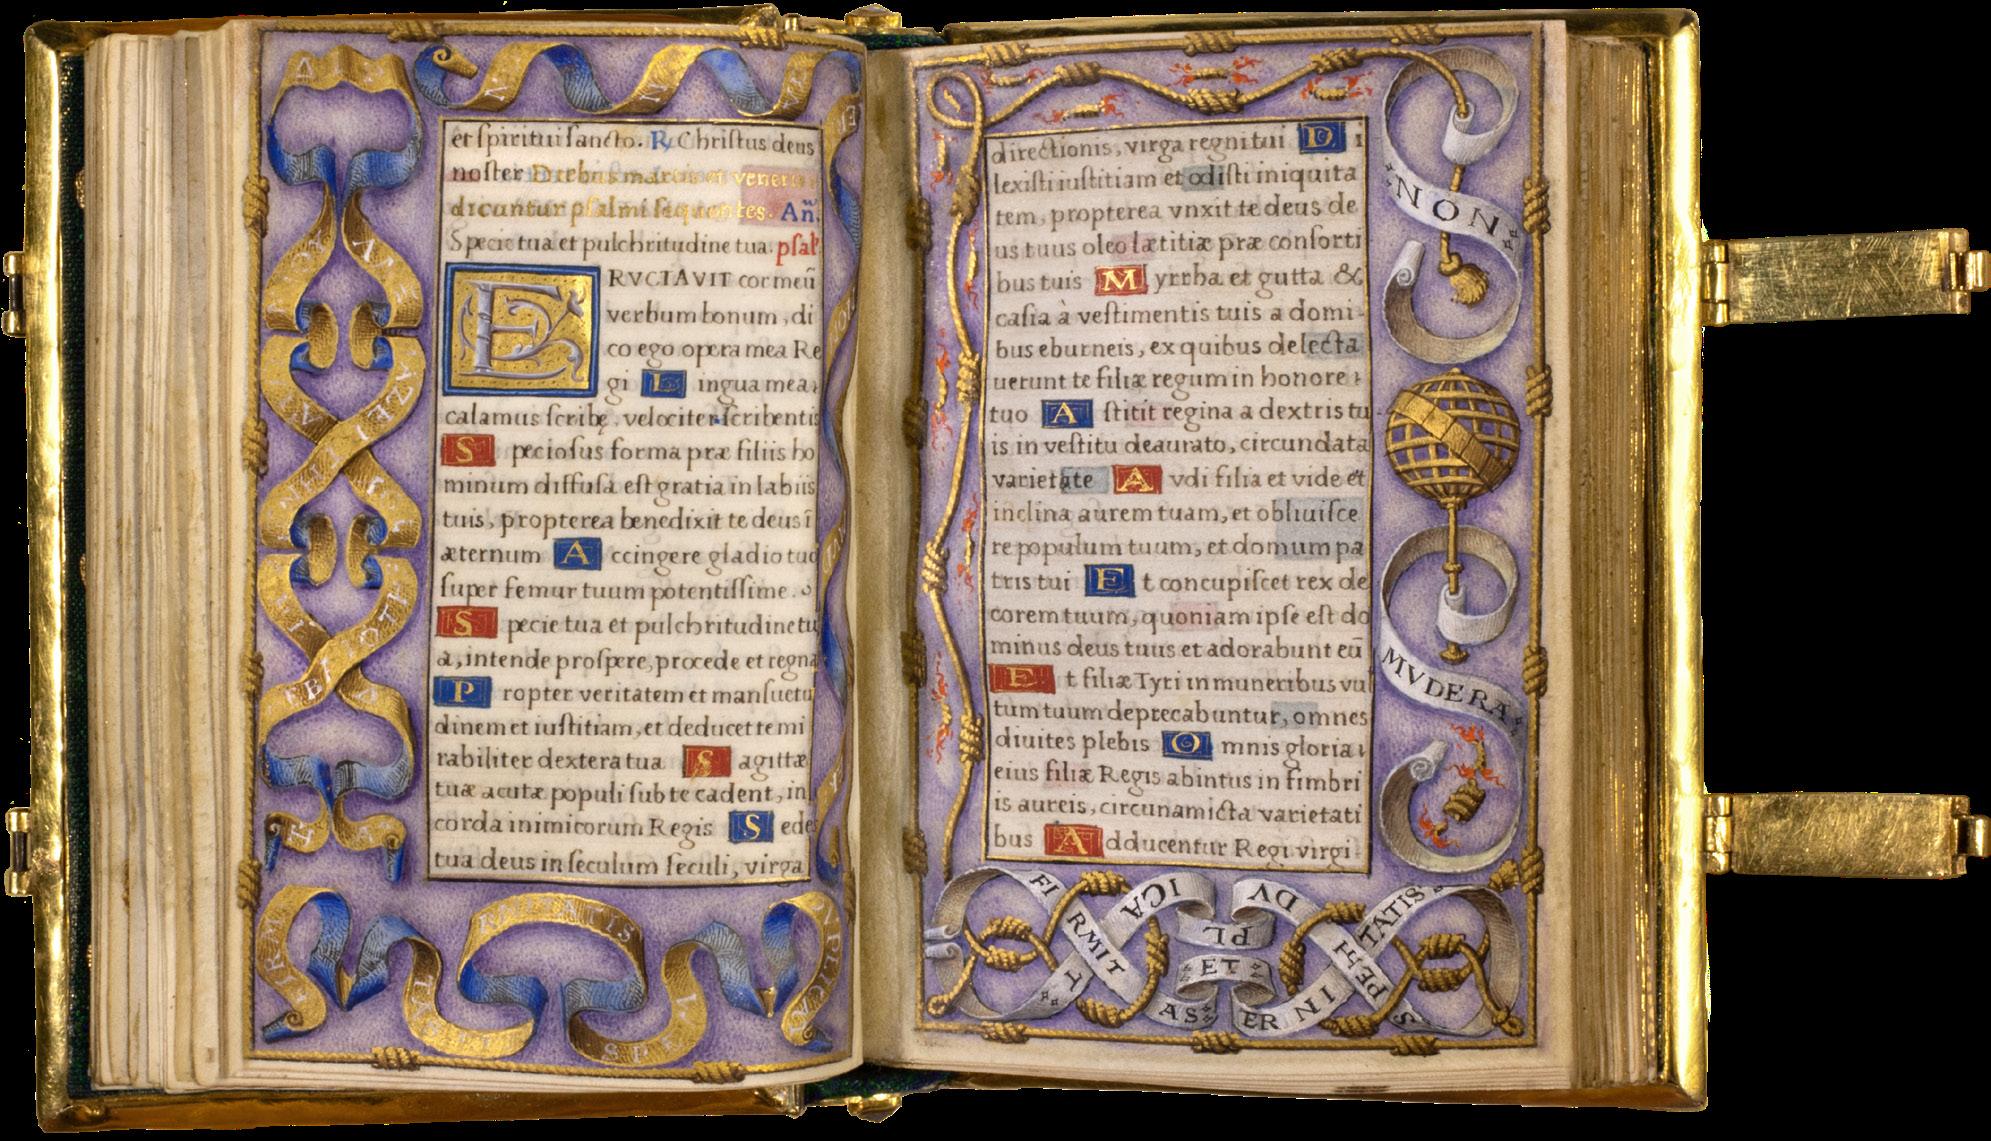 et spiritui sancto. R⁊ Christus deus
noster Diebus martis et veneris
dicuntur psalmi sequentes. Añ.
Specie tua et pulchritudine tua. psal
ERVCTAVIT cor meū
verbum bonum, di
co ego opera mea Re
gi L ingua mea
calamus scribę, velociter scribentis
S peciosus forma præ filiis ho
minum diffusa est gratia in labiis
tuis, propterea benedixit te deus ī
æternum A ccingere gladio tuo
super femur tuum potentissime.
S pecie tua et pulchritudine tu
a, intende prospere, procede et regna
P ropter veritatem et mansuetu
dinem et iustitiam, et deducet te mi
rabiliter dextera tua S agittæ
tuæ acutæ populi sub te cadent, in
corda inimicorum Regis S edes
tua deus in seculum seculi, virga
RADIANTIS
directionis, virga regni tui D i
lexisti iustitiam et odisti iniquita
tem, propterea vnxit te deus de
us tuus oleo lætitiæ præ consorti
bus tuis M yrrha et gutta &
casia à vestimentis tuis a domi
bus eburneis, ex quibus delecta
uerunt te filiæ regum in honore
tuo A stitit regina a dextris tu
is in vestitu deaurato, circundata
varietate A vdi filia et vide et
inclina aurem tuam, et obliuisce
re populum tuum, et domum pa
tris tui E t concupiscet rex de
corem tuum, quoniam ipse est do
minus deus tuus et adorabunt eū
E t filiæ Tyri in muneribus vul
tum tuum deprecabuntur, omnes
diuites plebis O mnis gloria
eius filiæ Regis ab intus in fimbri
is aureis, circunamicta varietati
bus A dducentur Regi virgi
NON
MVDERA
FIRMIT
AS
ET
DV
PL
ICA